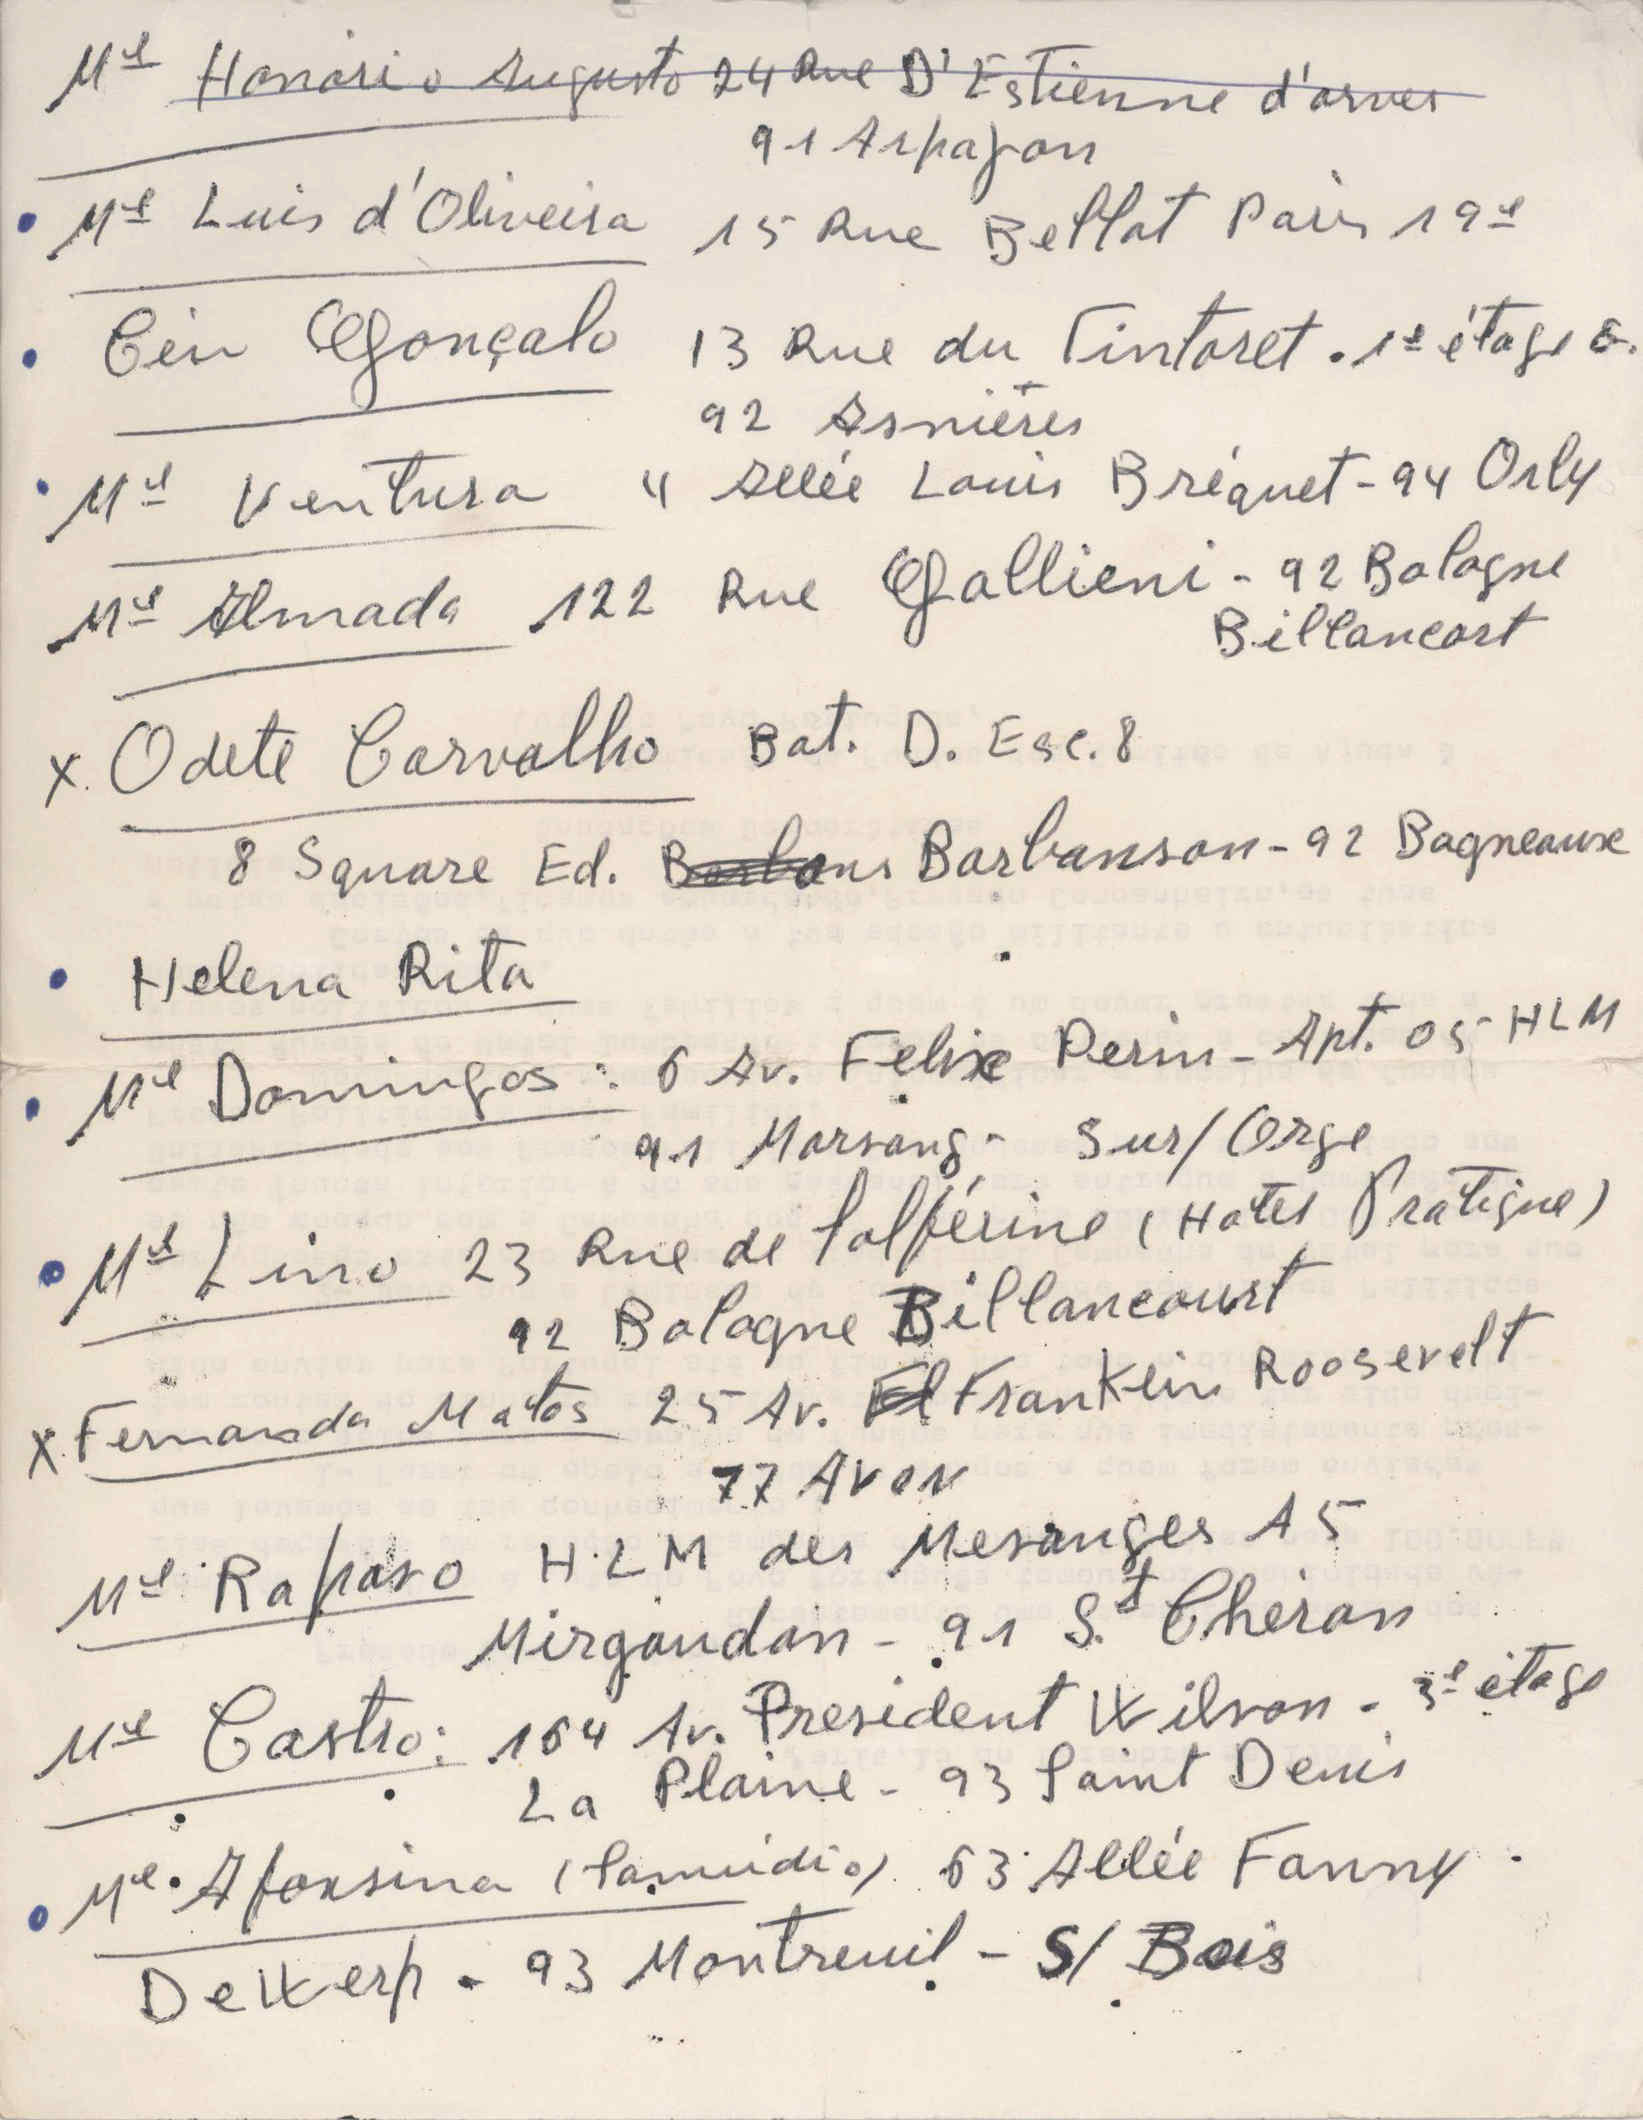 Mel Honório Augusto 24 Rue D'Estienne d'orves
91 Arpajon
• Mel Luis d'Oliveira 15 Rue Bellot Paris 19e
• Gonçalo 13 Rue du Tintoret. 1e étage
92 Asnières
• Mel Ventura 4 Allée Louis Bréquet - 94 Orly
Mel Almada 122 Rue Gallieni - 92 Bologne
Billancort
x. Odete Carvalho Bat. D. Esc. 8
8 Square Ed. Barbanson - 92 Bagneaux
• Helena Rita
• Mel Domingos: 6 Av. Felix Perin - Apt. 05 HLM
91 Morsang - Sur/Orge
• Mel Lino 23 Rue de Solférine (Hotel Pratique)
92 Bologne Billancourt
x. Fernanda Matos 25 Av. Franklin Roosevelt
77 Avon
Mel Raposo H.L M des Mesanges A5
Mirgaudon - 91 St Cheron
Mel Castro: 164 Av. President Wilson - 3e étage
La Plaine - 93 Saint Denis
• Mel. Afonsina 63 Allée Fanny.
Dewerp - 93 Montreuil - S/ Bois